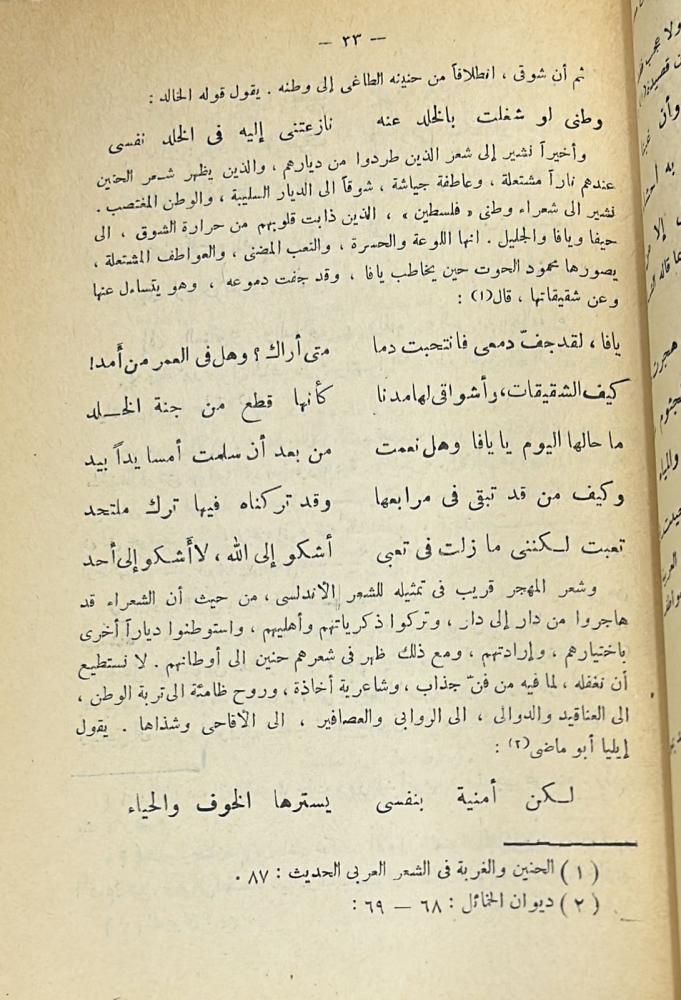 — ٣٣ —
ثم أن شوقى ، انطلاقاً من حنينه الطاغى إلى وطنه . يقول قوله الخالد :
وطنى لو شغلت بالخلد عنه نازعتنى إليه فى الخلد نفسى
وأخيراً نشير إلى شعر الذين طردوا من ديارهم ، والذين يظهر شعر الحنين
عندهم ناراً مشتعلة ، وعاطفة جياشة ، شوقاً الى الديار السليبة ، والوطن المغتصب .
نشير الى شعراء وطنى « فلسطين » ، الذين ذابت قلوبهم من حرارة الشوق ، الى
حيفا ويافا والجليل . انها اللوعة والحسرة ، والتعب المضنى ، والعواطف المشتعلة ،
يصورها محمود الحوت حين يخاطب يافا ، وقد جفت دموعه ، وهو يتساءل عنها
وعن شقيقاتها ، قال(١) :
يافا ، لقد جفّ دمعى فانتحبت دما متى أراك ؟ وهل فى العمر من أَمد!
كيف الشقيقات، وأشواقى لهامدنا كأنها قطع من جنة الخــلد
ما حالها اليوم يا يافا وهل نعمت من بعد أن سلمت أمسا يداً بيد
وكيف من قد تبقى فى مرابعها وقد تركناه فيها ترك ملتحد
تعبت لـكننى ما زلت فى تعبى أشكو إلى الله ، لا أَشكو إلى أحد
وشعر المهجر قريب فى تمثيله للشعر الأندلسى ، من حيث أن الشعراء قد
هاجروا من دار إلى دار ، وتركوا ذكرياتهم وأهليهم ، واستوطنوا دياراً أخرى
باختيارهم ، وإرادتهم ، ومع ذلك ظهر فى شعرهم حنين الى أوطانهم . لا نستطيع
أن نغفله ، لما فيه من فنّ جذاب ، وشاعرية أخاذة ، وروح ظامئة الى تربة الوطن ،
الى العناقيد والدوالى ، الى الروابى والعصافير ، الى الأقاحى وشذاها . يقول
إيليا أبو ماضى(٢) :
لـكن أمنية بنفسى يسترها الخوف والحياء
( ١ ) الحنين والغربة فى الشعر العربى الحديث : ٨٧ .
( ٢ ) ديوان الخمائل : ٦٨ — ٦٩ :